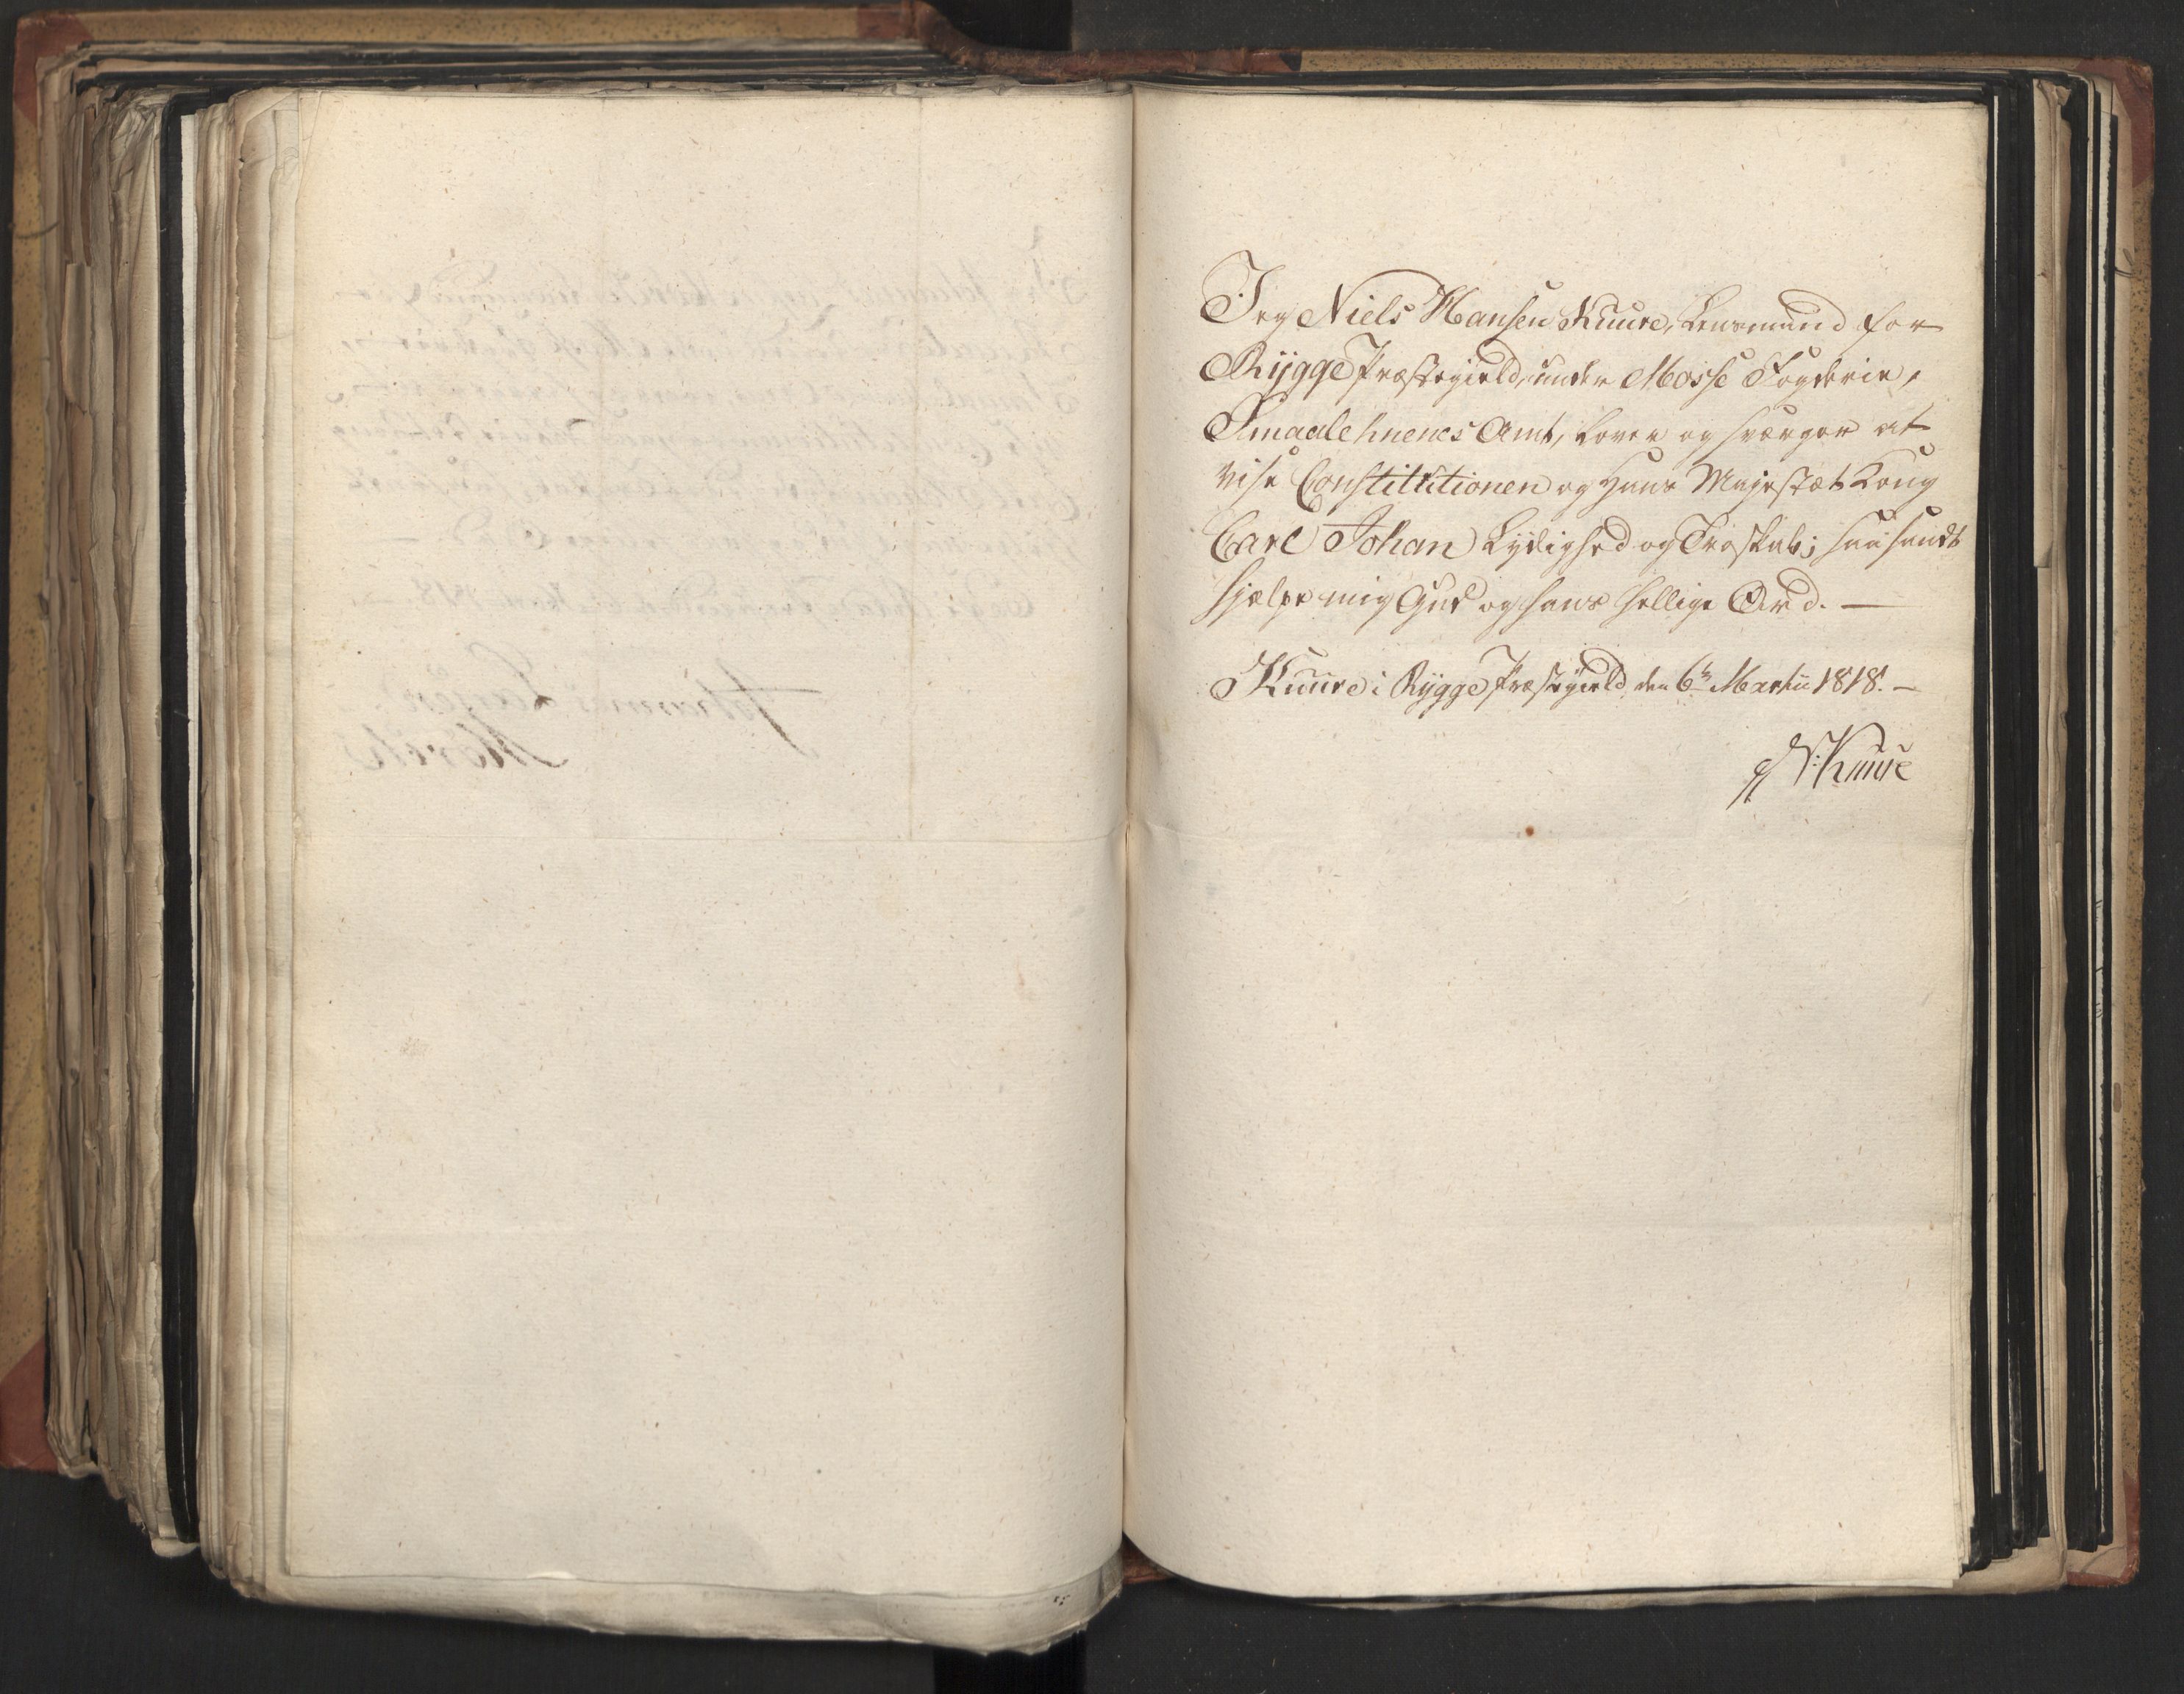 Jeg Niels Hansen Kuure, Lensmand for
Rÿgge Præstegield, under Mosse Fogderie,
Smaalehnenes Amt, lover og sværger at
vise Constitutionen og Hans Majestæt Kong
Carl Johan Lydighed og Troskab; saa sandt
hjelpe mig Gud og hans hellige Ord. —
Kuure i Rÿgge Præstegield, den 6te Martii 1818. —
N: Kuure